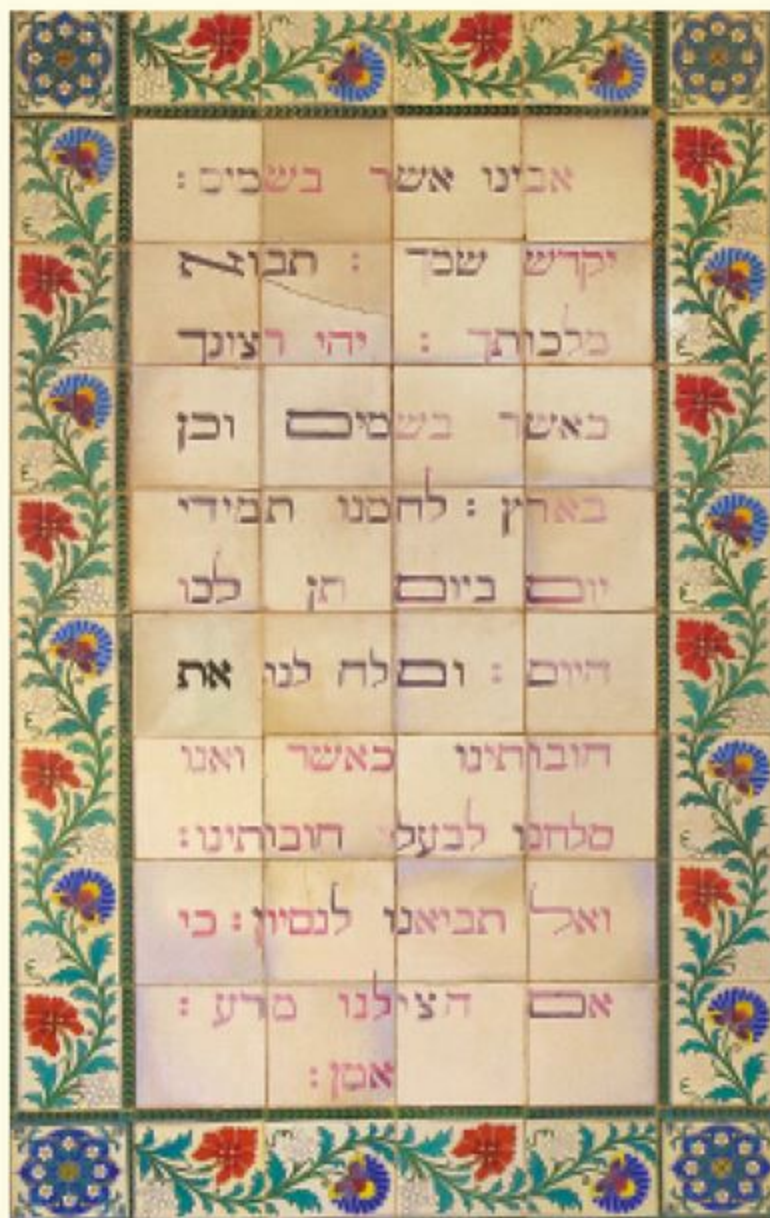 אבינו אשר בשמים :
יקדש שמך : תבוא
מלכותך : יהי רצונך
כאשר בשמים וכן
בארץ : לחמנו תמידי
יום ביום תן לנו
היום : וסלח לנו את
חובותינו כאשר ואנו
סלחנו לבעלי חובותינו :
ואל תביאנו לנסיון : כי
אם הצילנו מרע :
אמן :